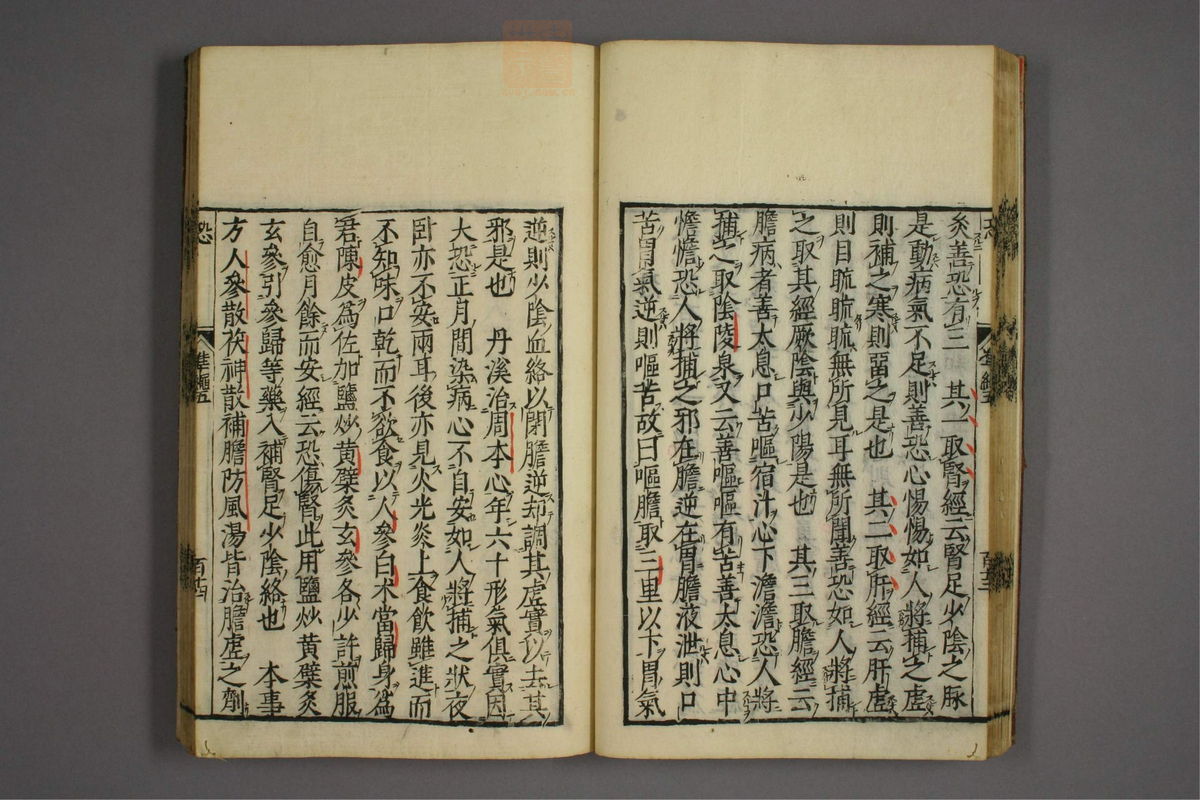 矣善恐有三　其一取腎經云腎足少陰之脉
是動病氣不足則善恐心惕惕如人將捕之虛
則補之寒則畱之是也　其二取肝經云肝虛
則目䀮䀮無所見耳無所聞善恐如人將捕
之取其經厥陰與少陽是也　其三取膽經云
膽病者善太息口苦嘔宿汁心下澹澹恐人將
捕之取陰陵泉又云善嘔嘔有苦善太息心中
憺憺恐人將捕之邪在膽逆在胃膽液泄則口
苦胃氣逆則嘔苦故曰嘔膽取三里以下胃氣
逆則少陰血絡以閉膽逆却調其虛實以去其
邪是也　丹溪治周本心年六十形氣俱實因
大恐正月間染病心不自安如人將捕之狀夜
臥亦不安兩耳後亦見火光炎上食飲雖進而
不知味口乾而不欲食以人參白术當歸身爲
君陳皮爲佐加鹽炒黄檗炙玄參各少許煎服
自愈月餘而安經云恐傷腎此用鹽炒黄檗炙
玄參引參歸等藥入補腎足少陰絡也　本事
方人參散茯神散補膽防風湯皆治膽虛之劑
恐
準繩五